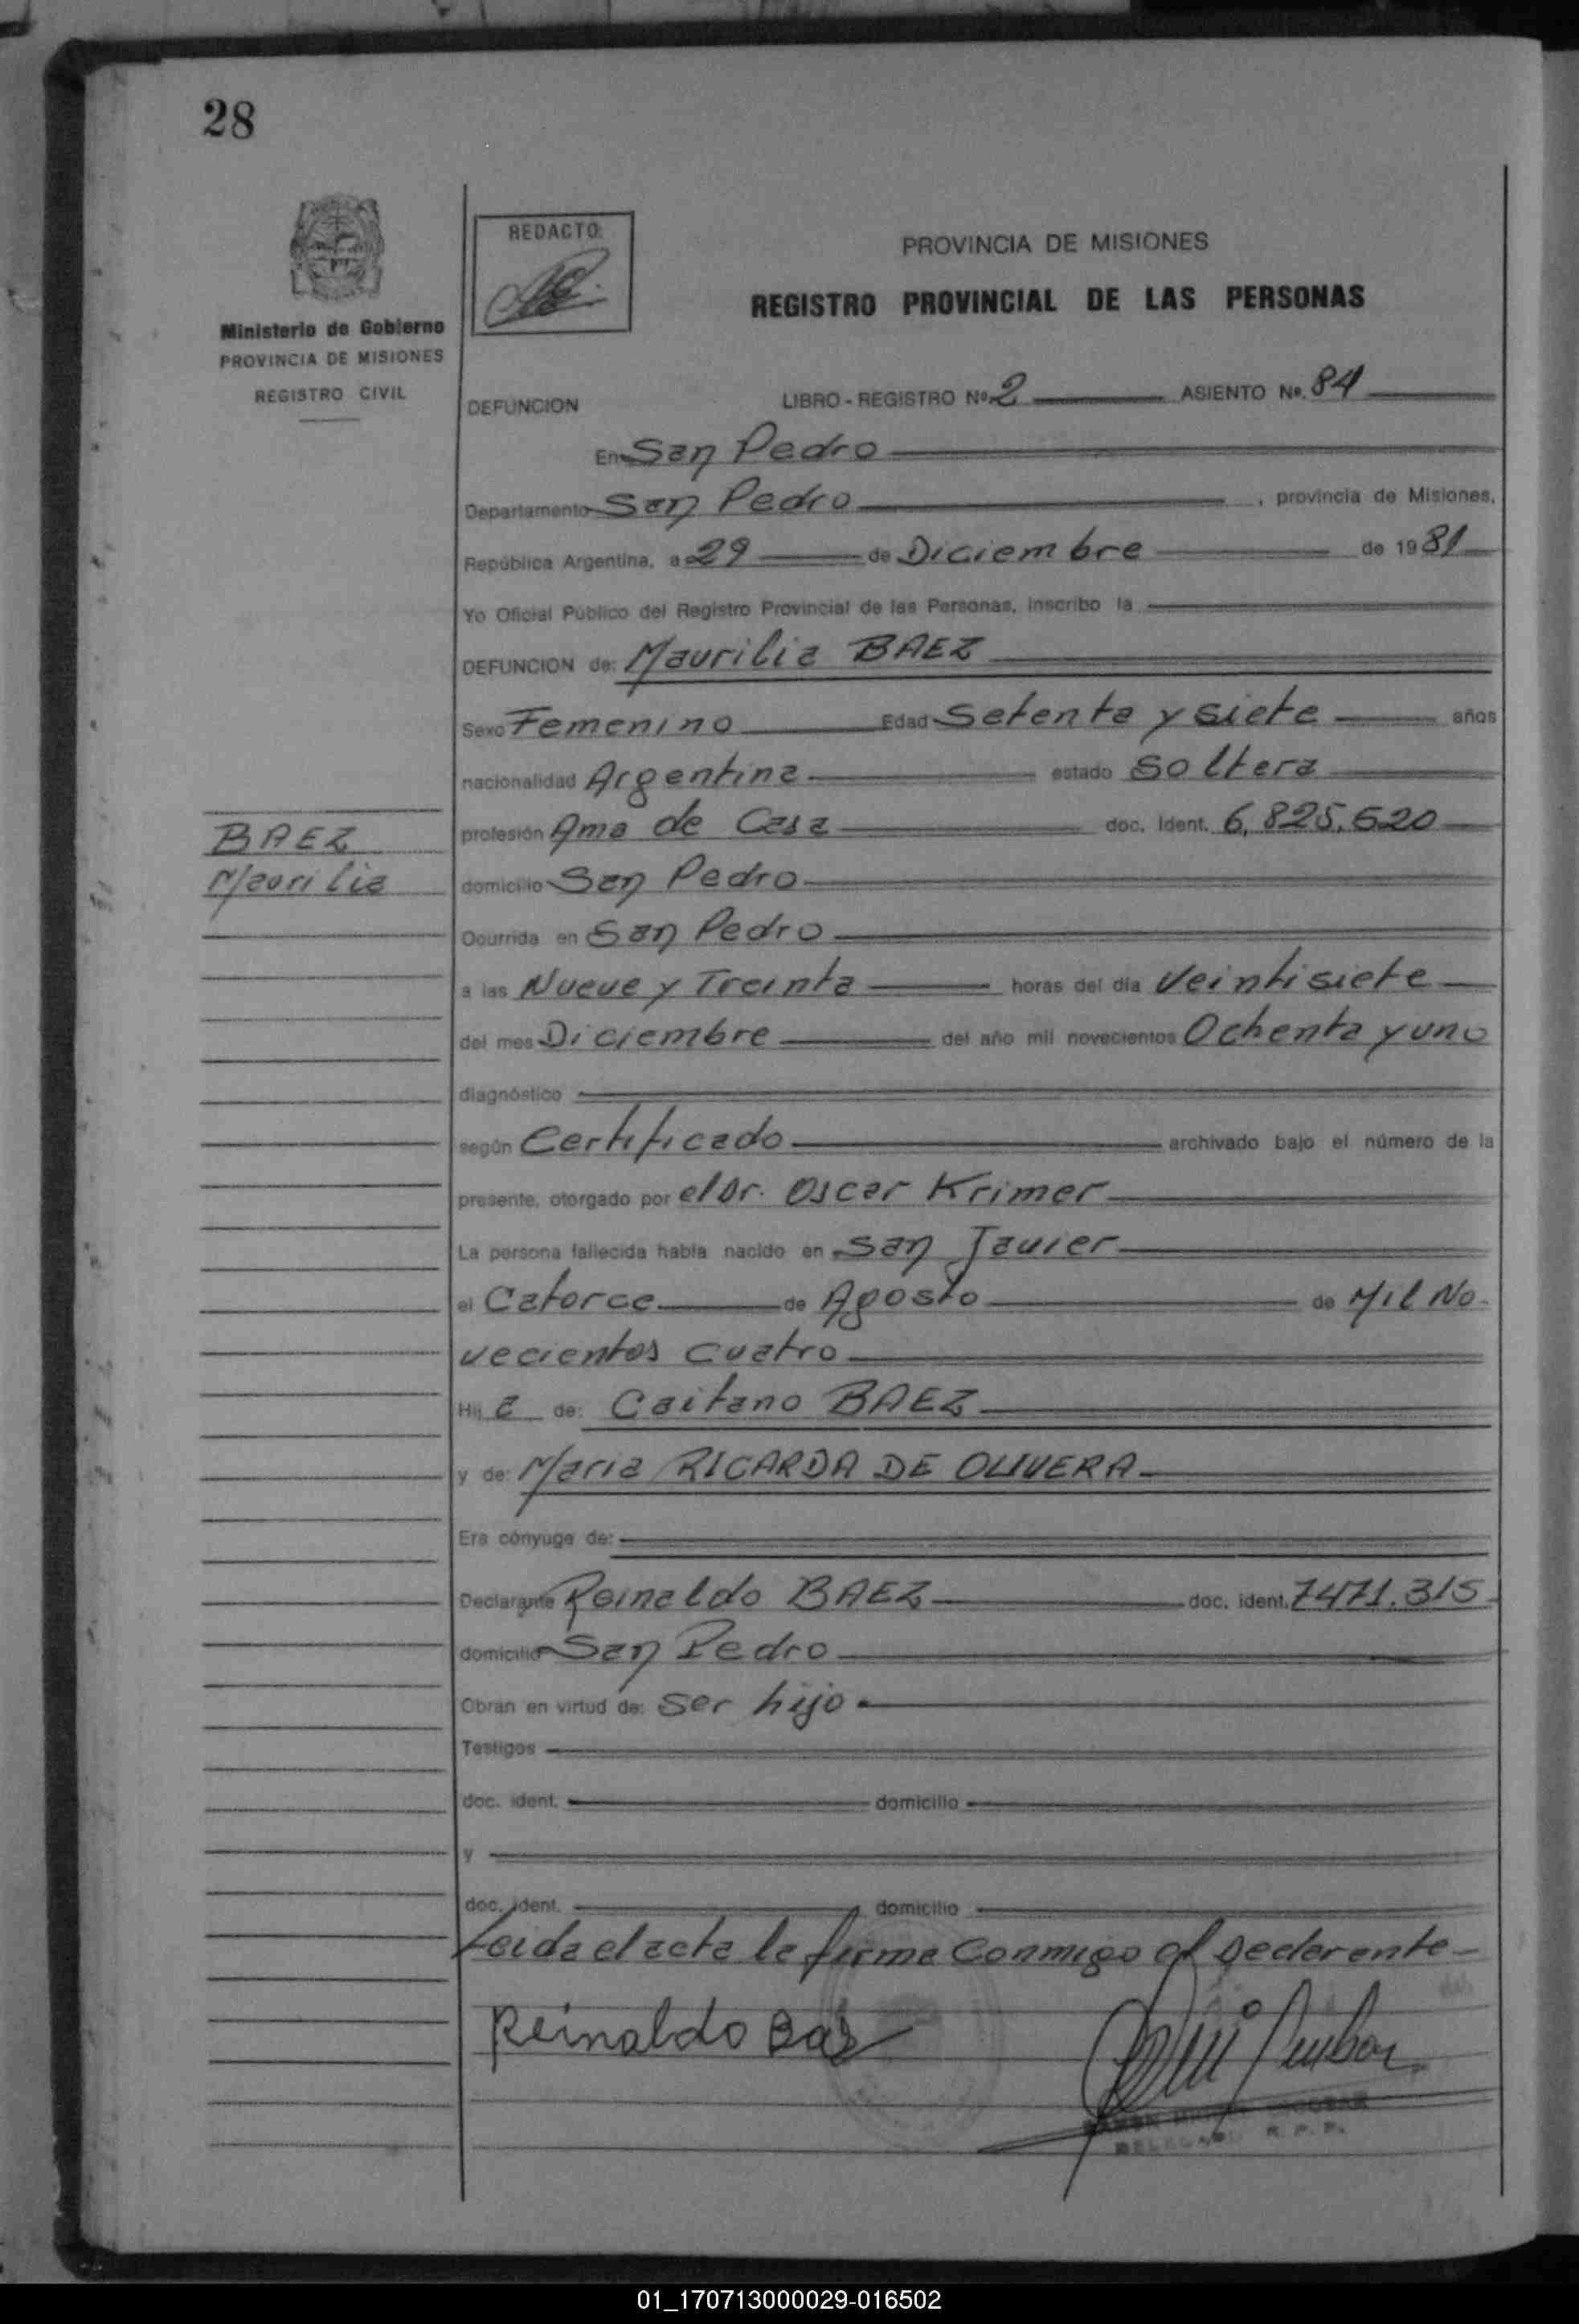 28
REDACTO:
PROVINCIA DE MISIONES
REGISTRO PROVINCIAL DE LAS PERSONAS
Ministerio de Gobierno
PROVINCIA DE MISIONES
REGISTRO CIVIL
DEFUNCION LIBRO - REGISTRO Nº 2 ASIENTO Nº. 84
En San Pedro
Departamento San Pedro, provincia de Misiones,
República Argentina, a 29 de Diciembre de 1981
Yo Oficial Público del Registro Provincial de las Personas, inscribo la
DEFUNCION de: Maurilia BAEZ
Sexo Femenino Edad Setenta y siete años
nacionalidad Argentina estado Soltera
profesión Ama de Casa doc. ident. 6,825.620
BAEZ
Maurilia
domicilio San Pedro
Ocurrida en San Pedro
a las Nueve y Treinta horas del día Veintisiete
del mes Diciembre del año mil novecientos Ochenta y uno
diagnóstico
según Certificado archivado bajo el número de la
presente, otorgado por el Dr. Oscar Krimer
La persona fallecida había nacido en San Javier
el Catorce de Agosto de Mil No-
vecientos cuatro
Hij a de: Caitano BAEZ
y de: Maria RICARDA DE OLIVERA
Era cónyuge de:
Declarante Reinaldo BAEZ doc. ident. 7471.315
domicilio San Pedro
Obran en virtud de: ser hijo
Testigos
doc. ident. domicilio
y
doc. ident. domicilio
Leida el acta la firma Conmigo el Declarante
Reinaldo Baz
ESCOBAR
DELEGADO R. P. P.
01_170713000029-016502